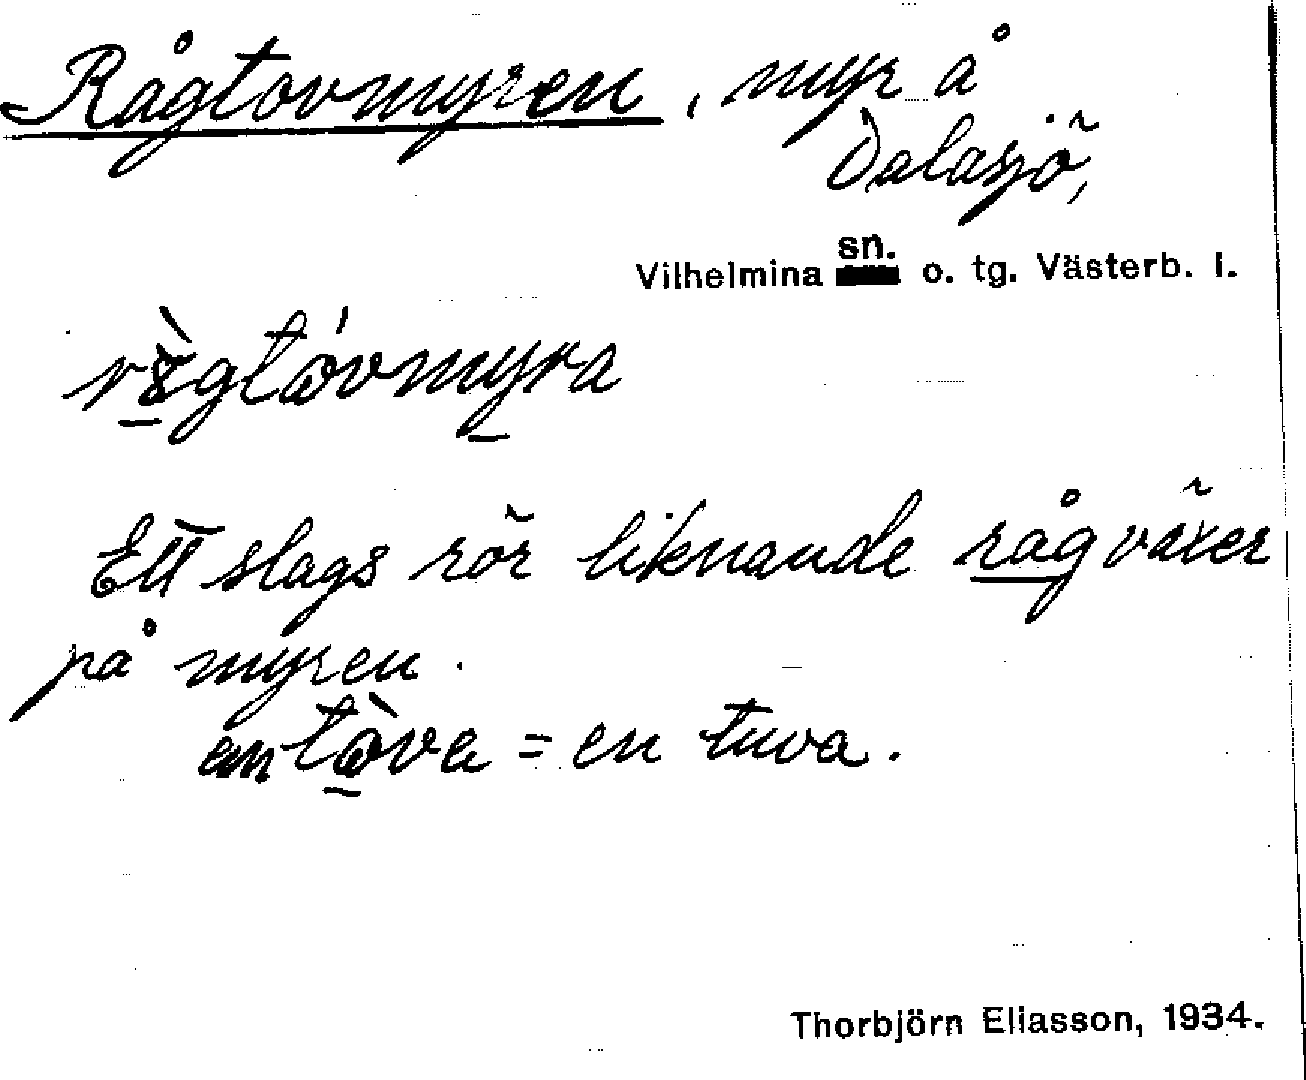 Rågtovmyren, myr å
Dalasjö,
Vilhelmina sn. o. tg. Västerb. l.
Ett slags rör liknande råg växer
på myren.
= en tuva.
Thorbjörn Eliasson, 1934.